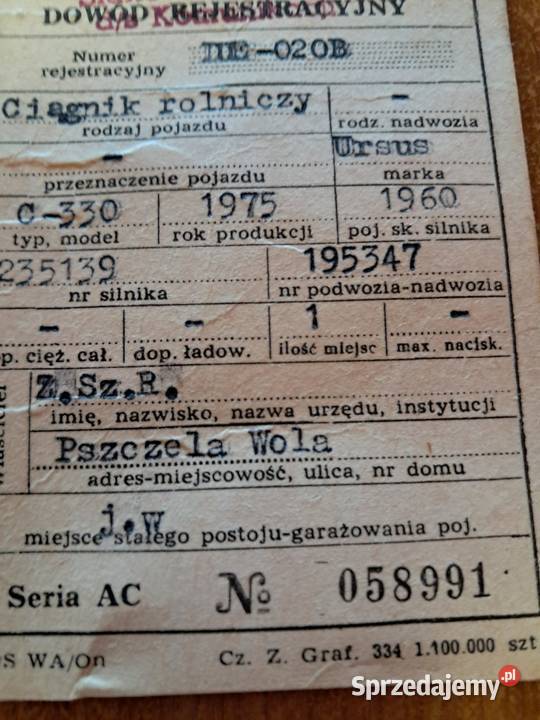 DOWÓD REJESTRACYJNY
Numer rejestracyjny
-020B
Ciągnik rolniczy -
rodzaj pojazdu rodz. nadwozia
- Ursus
przeznaczenie pojazdu marka
C-330 1975 1960
typ, model rok produkcji poj. sk. silnika
235139 195347
nr silnika nr podwozia-nadwozia
- - 1 -
op. cięż. cał. dop. ładow. ilość miejsc max. nacisk.
Z.Sz.R.
imię, nazwisko, nazwa urzędu, instytucji
Pszczela Wola
adres-miejscowość, ulica, nr domu
j.w
miejsce stałego postoju-garażowania poj.
Seria AC № 058991
OS WA/On Cz. Z. Graf. 334 1.100.000 szt
Sprzedajemy.pl